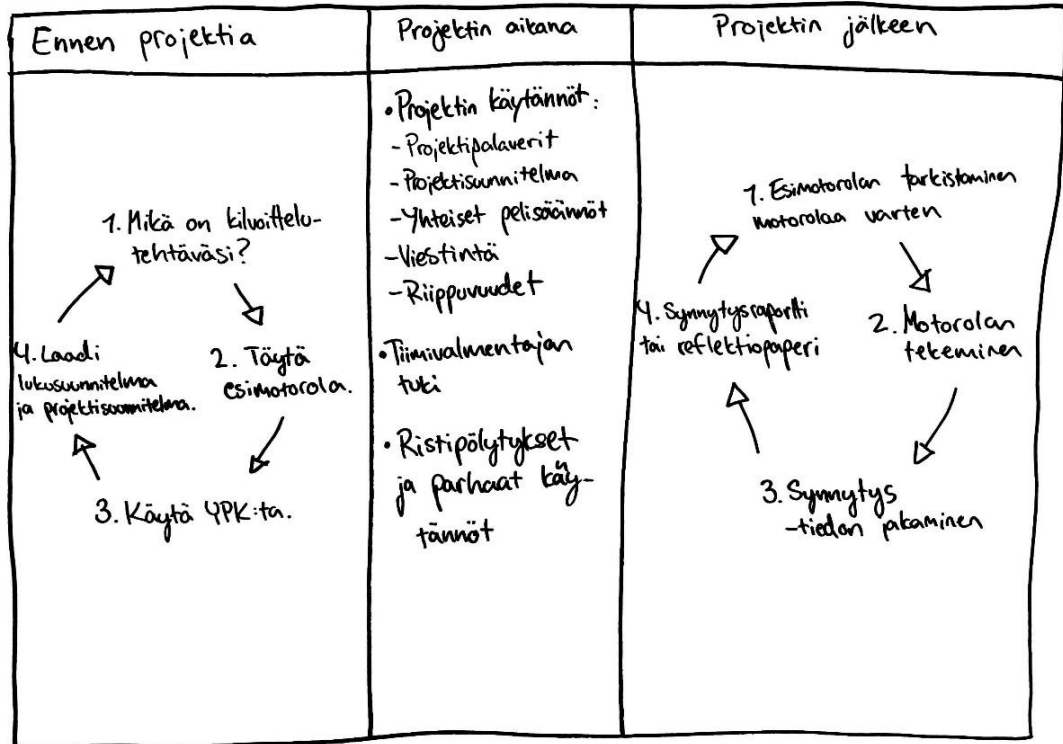 Ennen projektia
1. Mikä on kilvoittelu-
tehtäväsi?
2. Täytä
esimotorola.
3. Käytä YPK:ta.
4. Laadi
lukusuunnitelma
ja projektisuunnitelma.
Projektin aikana
• Projektin käytännöt:
- Projektipalaverit
- Projektisuunnitelma
- Yhteiset pelisäännöt
- Viestintä
- Riippuvuudet
• Tiimivalmentajan
tuki
• Ristipölytykset
ja parhaat käy-
tännöt
Projektin jälkeen
1. Esimotorolan tarkistaminen
motorolaa varten
2. Motorolan
tekeminen
3. Synnytys
-tiedon jakaminen
4. Synnytysraportti
tai reflektiopaperi